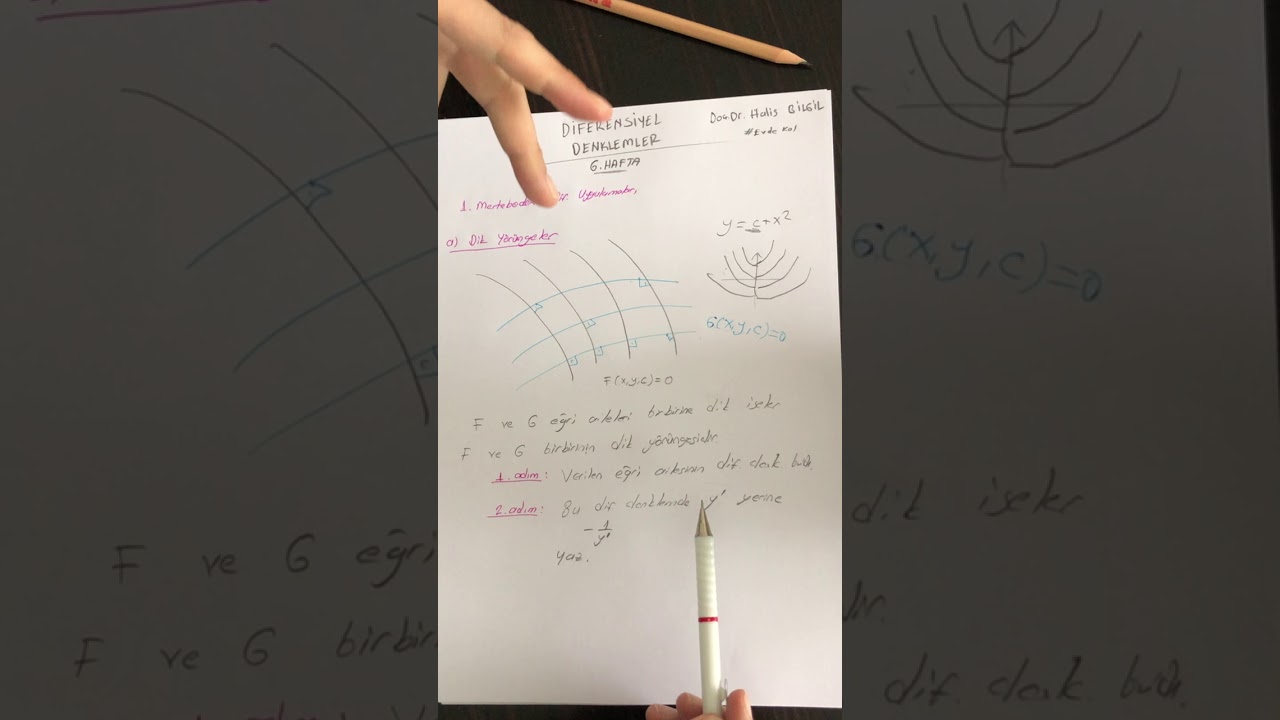 DİFERENSİYEL
DENKLEMLER
Doç.Dr. Halis BİLGİL
#Evde Kal
6.HAFTA
1. Mertebeden Uygulamaları
a) Dik Yörüngeler
y = c+x²
G(x,y,c)=0
F(x,y,c)=0
F ve G eğri aileleri birbirine dik iseler
F ve G birbirinin dik yörüngesidir.
1.adım: Verilen eğri ailesinin dif. denk bulun.
2.adım: Bu dif denkleminde y' yerine
-1/y'
yaz.